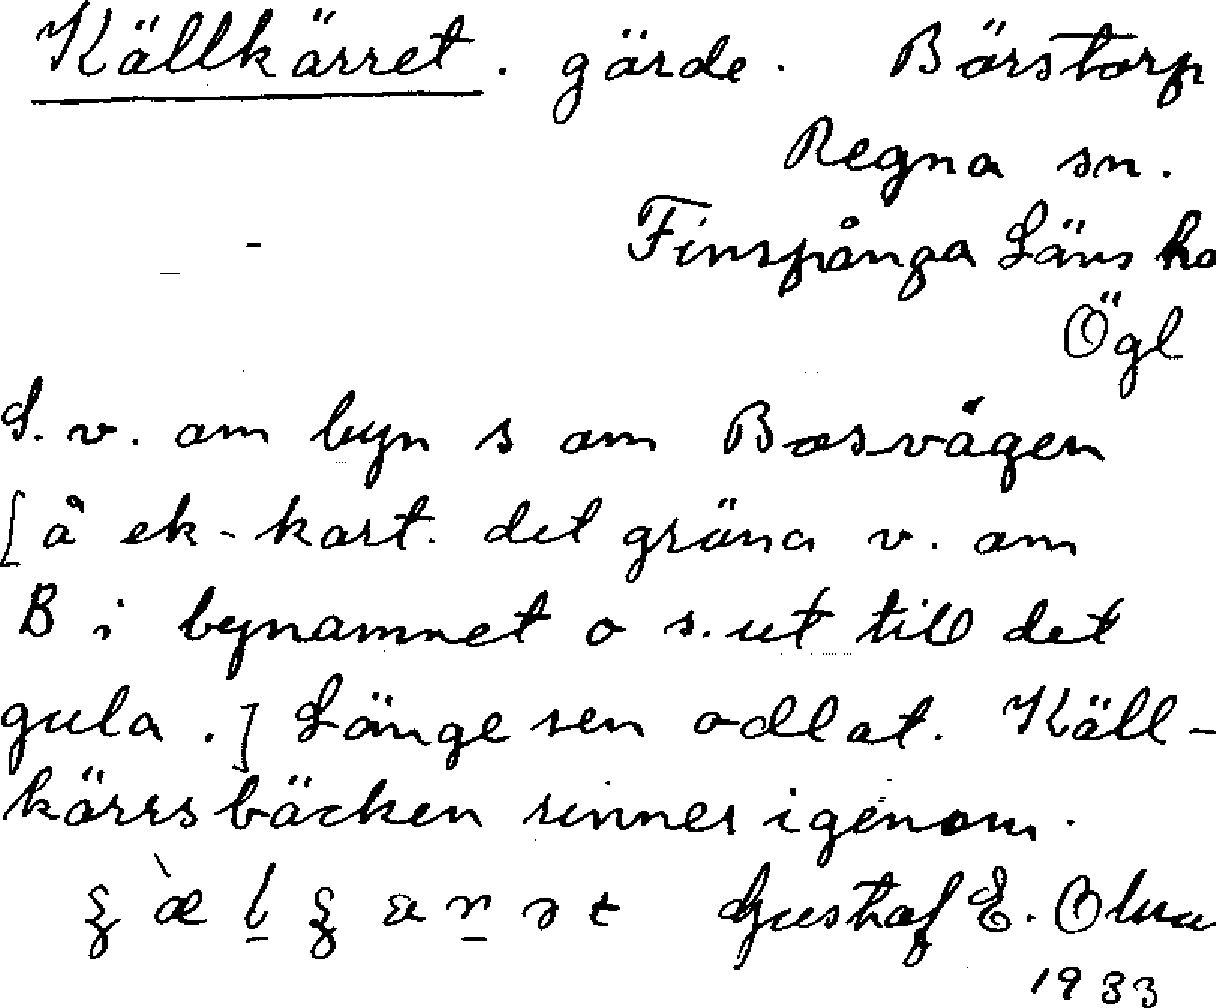 Källkärret. gärde. Börstorp
Regna sn.
Finspånga Läns
Ögl
S. v. om byn s om Bosvägen
[å ek-kart. det gröna v. om
B i bynamnet o s. ut till det
gula.] Länge sen odlat. Käll-
kärrsbäcken rinner igenom.
Gustaf E.
1933